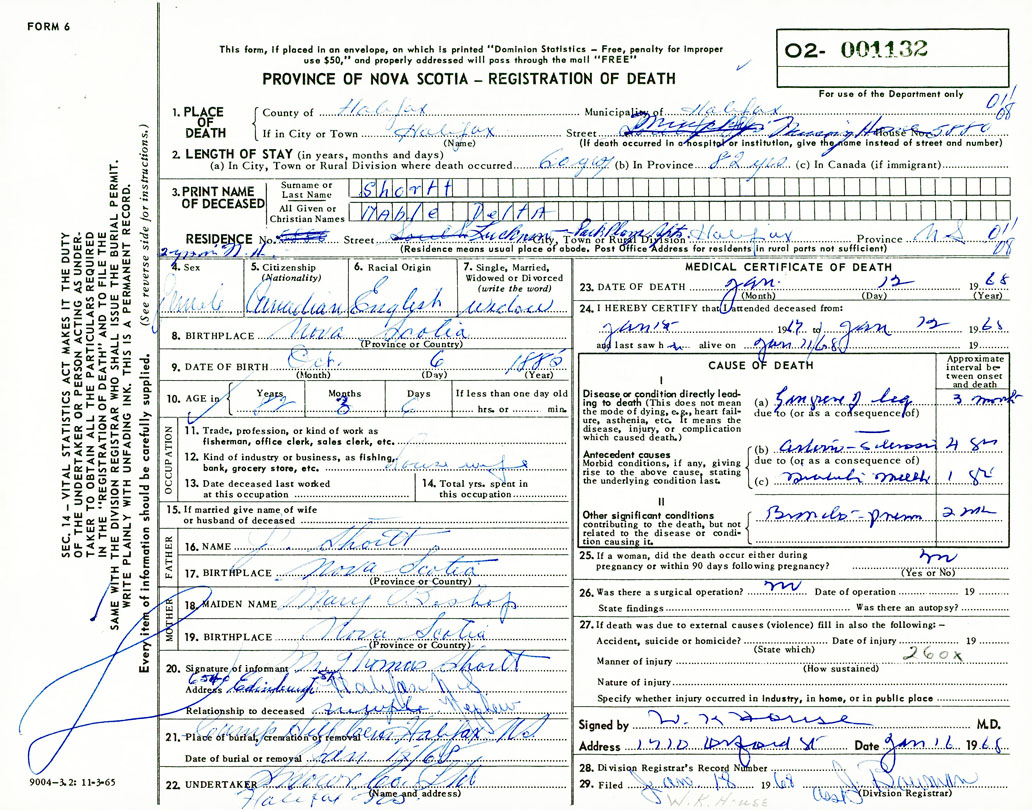 FORM 6
This form, if placed in an envelope, on which is printed "Dominion Statistics – Free, penalty for improper
use $50," and properly addressed will pass through the mail "FREE"
PROVINCE OF NOVA SCOTIA – REGISTRATION OF DEATH
02- 001132
For use of the Department only
011
08
1. PLACE OF DEATH
County of Halifax Municipality of Halifax
If in City or Town Halifax Street Nursing House No. 5880
(Name) (If death occurred in a hospital or institution, give the name instead of street and number)
2. LENGTH OF STAY (in years, months and days)
(a) In City, Town or Rural Division where death occurred 60 yrs (b) In Province 82 yrs (c) In Canada (if immigrant)
3. PRINT NAME OF DECEASED
Surname or Last Name Shortt
All Given or Christian Names Mable Delta
RESIDENCE No. Street City, Town or Rural Division Halifax Province N S
011
08
(Residence means usual place of abode. Post Office Address for residents in rural parts not sufficient)
4. Sex Female
5. Citizenship (Nationality) Canadian
6. Racial Origin English
7. Single, Married, Widowed or Divorced (write the word) widow
8. BIRTHPLACE Nova Scotia
(Province or Country)
9. DATE OF BIRTH Oct. 6 1885
(Month) (Day) (Year)
10. AGE in Years 82 Months 3 Days 6 If less than one day old hrs. or min.
OCCUPATION
11. Trade, profession, or kind of work as fisherman, office clerk, sales clerk, etc.
12. Kind of industry or business, as fishing, bank, grocery store, etc. House wife
13. Date deceased last worked at this occupation
14. Total yrs. spent in this occupation
15. If married give name of wife or husband of deceased
FATHER
16. NAME J. Shortt
17. BIRTHPLACE Nova Scotia
(Province or Country)
MOTHER
18. MAIDEN NAME Mary Bishop
19. BIRTHPLACE Nova Scotia
(Province or Country)
20. Signature of informant Mr Thomas Shortt
Address Edinburgh St Halifax N.S
Relationship to deceased Nephew
21. Place of burial, cremation or removal Halifax N.S
Date of burial or removal Jan
22. UNDERTAKER Snow Co. Ltd
(Name and address)
Halifax
MEDICAL CERTIFICATE OF DEATH
23. DATE OF DEATH Jan. 12 1968
(Month) (Day) (Year)
24. I HEREBY CERTIFY that I attended deceased from:
1967 to Jan 12 1968
and last saw h alive on Jan 11/68 19
CAUSE OF DEATH
Approximate interval between onset and death
I
Disease or condition directly leading to death (This does not mean the mode of dying, e.g., heart failure, asthenia, etc. It means the disease, injury, or complication which caused death.)
(a) Gangrene of leg 3 month
due to (or as a consequence of)
Antecedent causes
Morbid conditions, if any, giving rise to the above cause, stating the underlying condition last.
(b) Arterio-Sclerosis 4
due to (or as a consequence of)
(c) 1
II
Other significant conditions contributing to the death, but not related to the disease or condition causing it.
Broncho-pneum 2
25. If a woman, did the death occur either during pregnancy or within 90 days following pregnancy?
(Yes or No)
26. Was there a surgical operation? Date of operation 19
State findings Was there an autopsy?
27. If death was due to external causes (violence) fill in also the following: –
Accident, suicide or homicide? Date of injury 19
(State which)
260x
Manner of injury
(How sustained)
Nature of injury
Specify whether injury occurred in industry, in home, or in public place
Signed by W. K House M.D.
Address 1710 Oxford St Date Jan 16 1968
28. Division Registrar's Record Number
29. Filed Jan 18 1968
(Division Registrar)
W. K. House
SEC. 14 – VITAL STATISTICS ACT MAKES IT THE DUTY
OF THE UNDERTAKER OR PERSON ACTING AS UNDER-
TAKER TO OBTAIN ALL THE PARTICULARS REQUIRED
IN THE "REGISTRATION OF DEATH" AND TO FILE THE
SAME WITH THE DIVISION REGISTRAR WHO SHALL ISSUE THE BURIAL PERMIT.
WRITE PLAINLY WITH UNFADING INK. THIS IS A PERMANENT RECORD.
Every item of information should be carefully supplied. (See reverse side for instructions.)
9004-3.2: 11-3-65